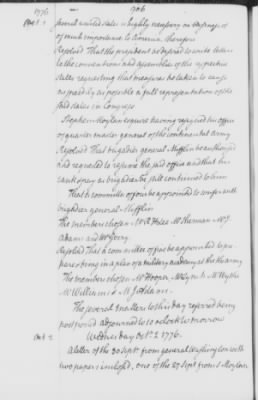 1776
906
Oct. 1
these united states is highly necessary on business of
of much importance to America, therefore
Resolved That the president be desired to write letters
to the conventions and assemblies of the respective
states requesting that measures be taken to cause
as speedily as possible a full representation of the
said states in Congress
Stephen Moylan esquire having resigned his office
of quarter master general of the continental army
Resolved That brigadier general Mifflin be authorized
and requested to resume the said office and that his
rank & pay as brigadier be still continued to him
That a committee of four be appointed to confer with
brigadier general Mifflin
The members chosen Mr R H Lee Mr Sherman Mr J.
Adams and Mr Gerry.
Resolved That a committee of five be appointed to pre-
pare & bring in a plan of a military academy at the army
The members chosen Mr Hooper Mr Lynch Mr Wythe
Mr Williams & Mr J Adams.
The several matters to this day referred being
postponed adjourned to 10 o'clock to morrow
Wednesday Oct. 2. 1776.
Oct. 2.
A letter of the 30 Sept. from general Washington with
two papers inclosed, one of the 27 Sept from S Moylan